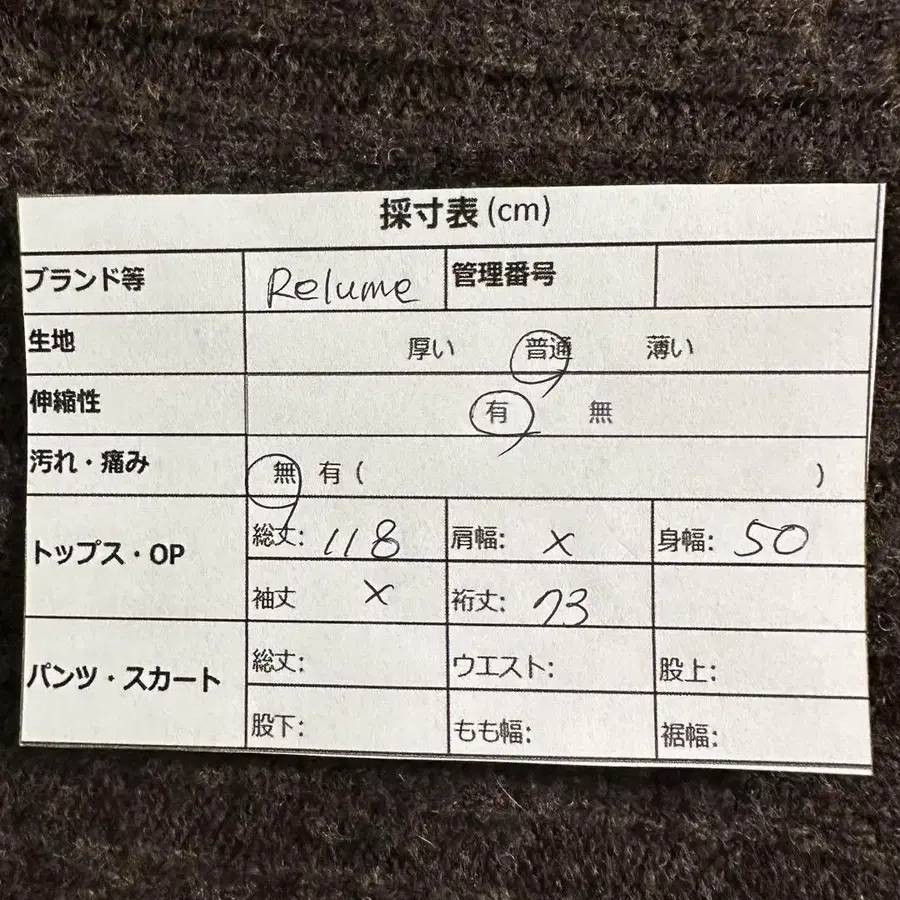 採寸表(cm)
ブランド等 Relume 管理番号
生地 厚い 普通 薄い
伸縮性 有 無
汚れ・痛み 無 有 ( )
トップス・OP
総丈: 118 肩幅: x 身幅: 50
袖丈 x 裄丈: 73
パンツ・スカート
総丈: ウエスト: 股上:
股下: もも幅: 裾幅: